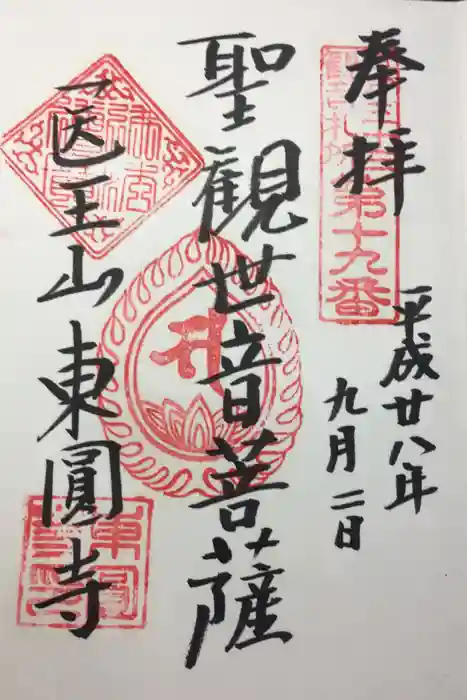 奉拝
第十九番
平成廿八年
九月二日
聖観世音菩薩
医王山 東圓寺